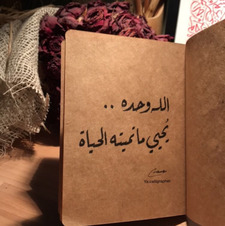 الله وحده ..
يُحيي ما تميته الحياة